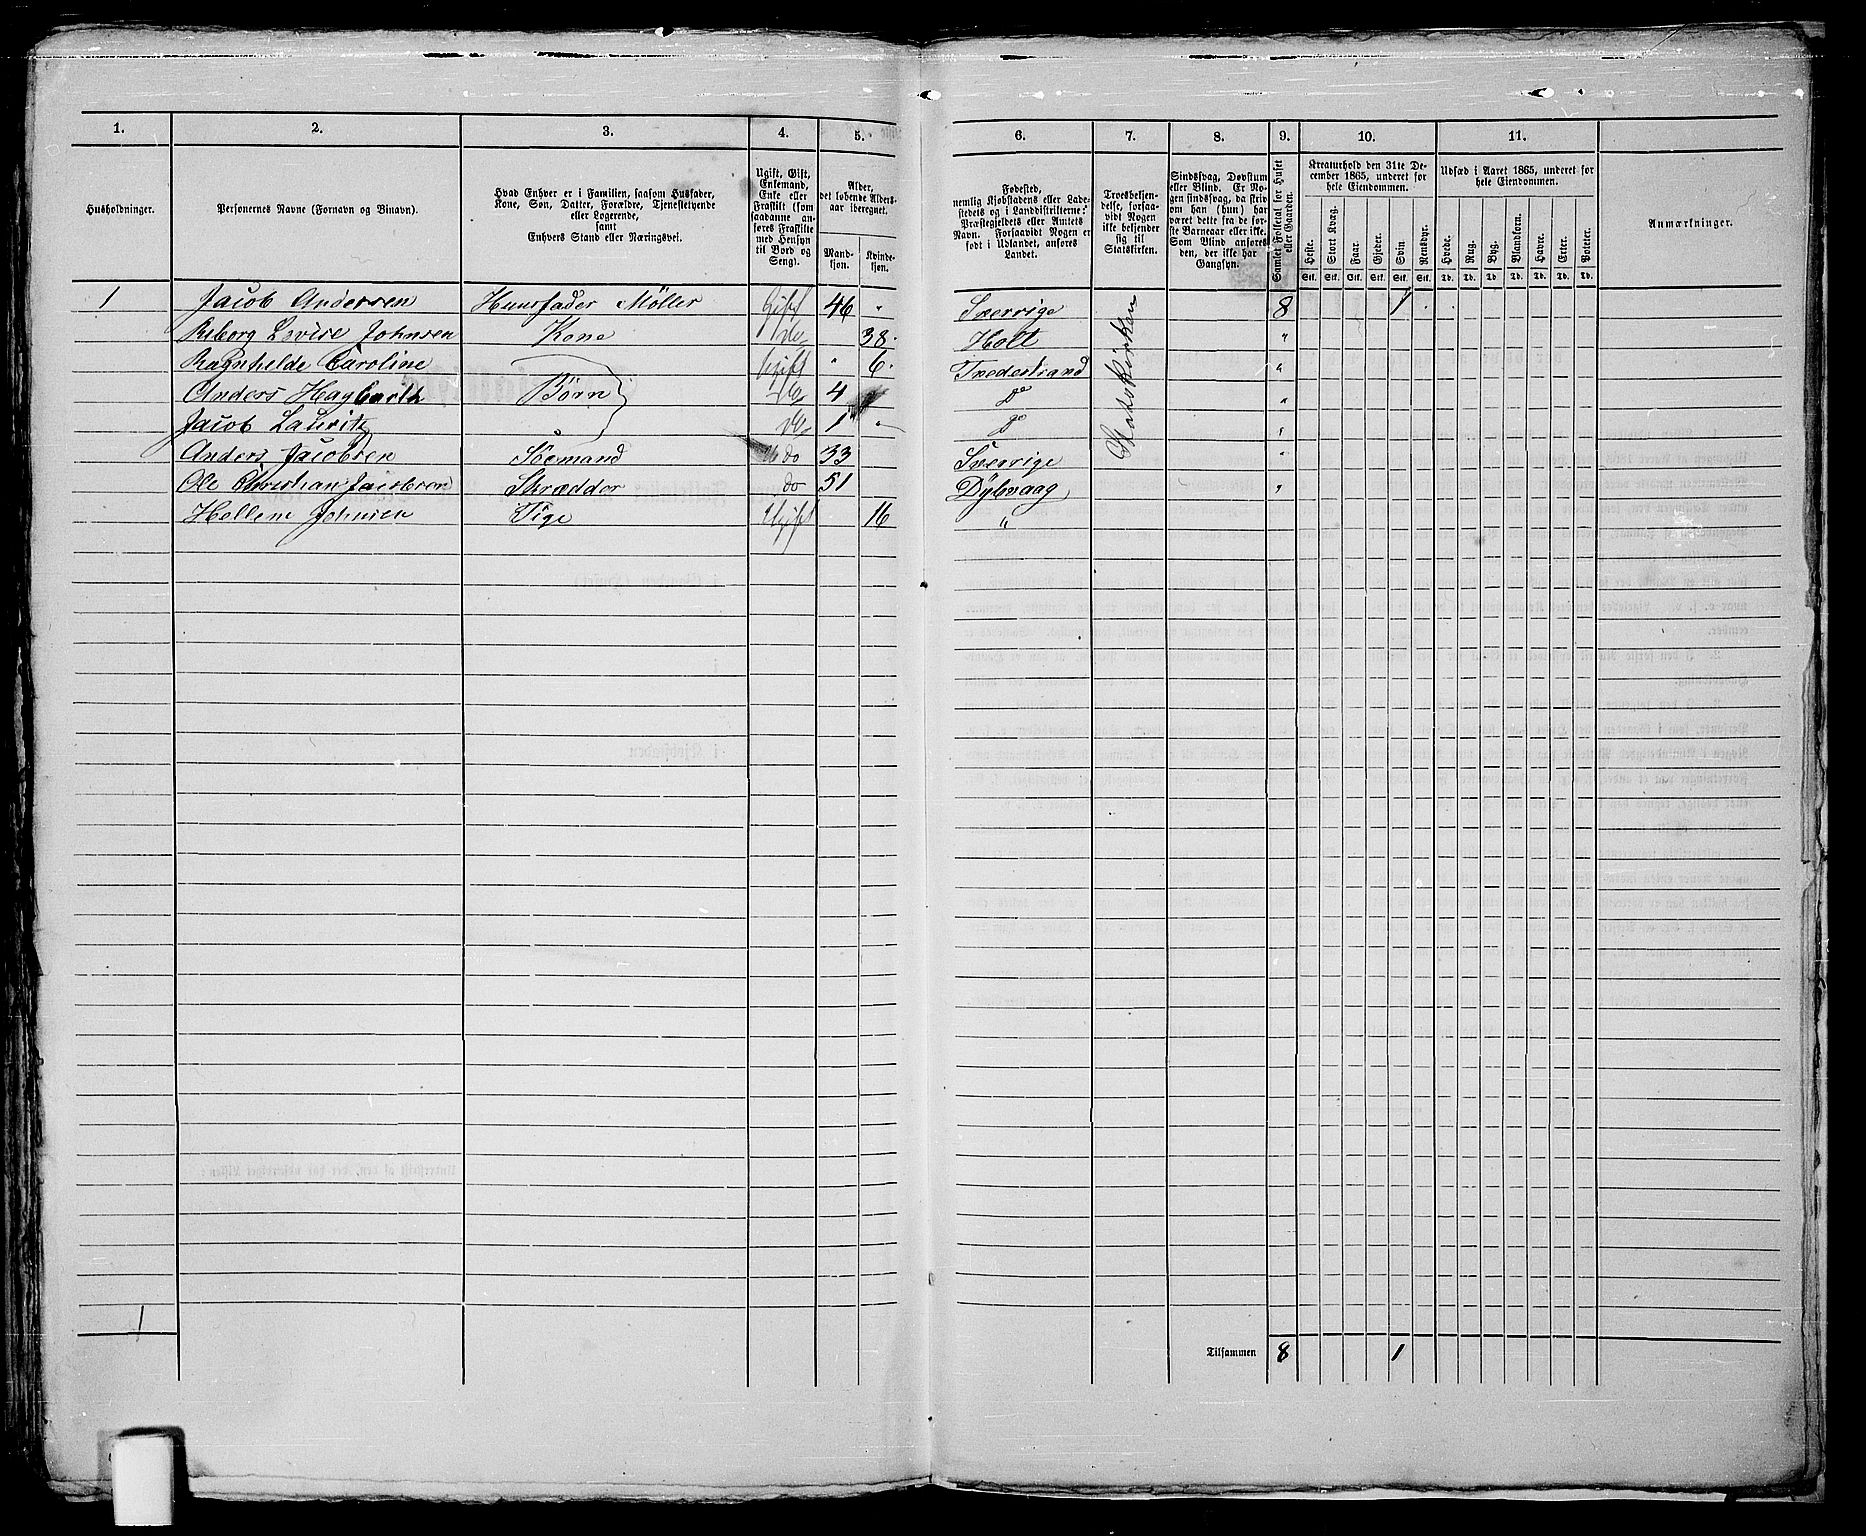 1. 2. 3. 4. 5. 6. 7. 8. 9. 10. 11.
Husholdninger.
Personernes Navne (Fornavn og Binavn).
Hvad Enhver er i Familien, saasom Husfader,
Kone, Søn, Datter, Forældre, Tjenestetyende
eller Logerende,
samt
Enhvers Stand eller Næringsvei.
Ugift, Gift,
Enkemand,
Enke eller
Fraskilt (som
saadanne an-
føres Fraskilte
med Hensyn
til Bord og
Seng).
Alder,
det løbende Alders-
aar iberegnet.
Mand-
kjøn.
Kvinde-
kjøn.
Fødested,
nemlig Kjøbstadens eller Lade-
stedets og i Landdistrikterne:
Præstegjeldets eller Amtets
Navn. Forsaavidt Nogen er
født i Udlandet, anføres
Landet.
Troesbekjen-
delse, forsaa-
vidt Nogen
ikke bekjender
sig til
Statskirken.
Sindssvag, Døvstum
eller Blind. Er No-
gen sindssvag, da skriv
om han (hun) har
været dette fra de før-
ste Barneaar eller ikke.
Som Blind anføres
den, der ikke har
Gangsyn.
Samlet Folketal for Huset
eller Gaarden.
Kreaturhold den 31te De-
cember 1865, underet for
hele Eiendommen.
Heste. Stort Kvæg. Faar. Gjeder. Svin. Rensdyr.
Stk. Stk. Stk. Stk. Stk. Stk.
Udsæd i Aaret 1865, underet for
hele Eiendommen.
Hvede. Rug. Byg. Blandkorn. Havre. Erter. Poteter.
Td. Td. Td. Td. Td. Td. Td.
Anmærkninger.
1 Jacob Andersen Huusfader Møller Gift 46 " Sverrige Statskirken 8 1
Lovise Johnsen Kone do 38 Holt "
Ragnhelde Caroline Ugift " 6 Tvedestrand "
Anders Hagbarth Børn do 4 do "
Jacob Lauritz do 1 " do "
Anders Jacobsen Söemand do 33 Sverrige "
Ole Christian Jacobsen Skrædder do 51 Dybvaag "
Hellene Johnsen Pige Ugift 16 "
1
Tilsammen 8 1